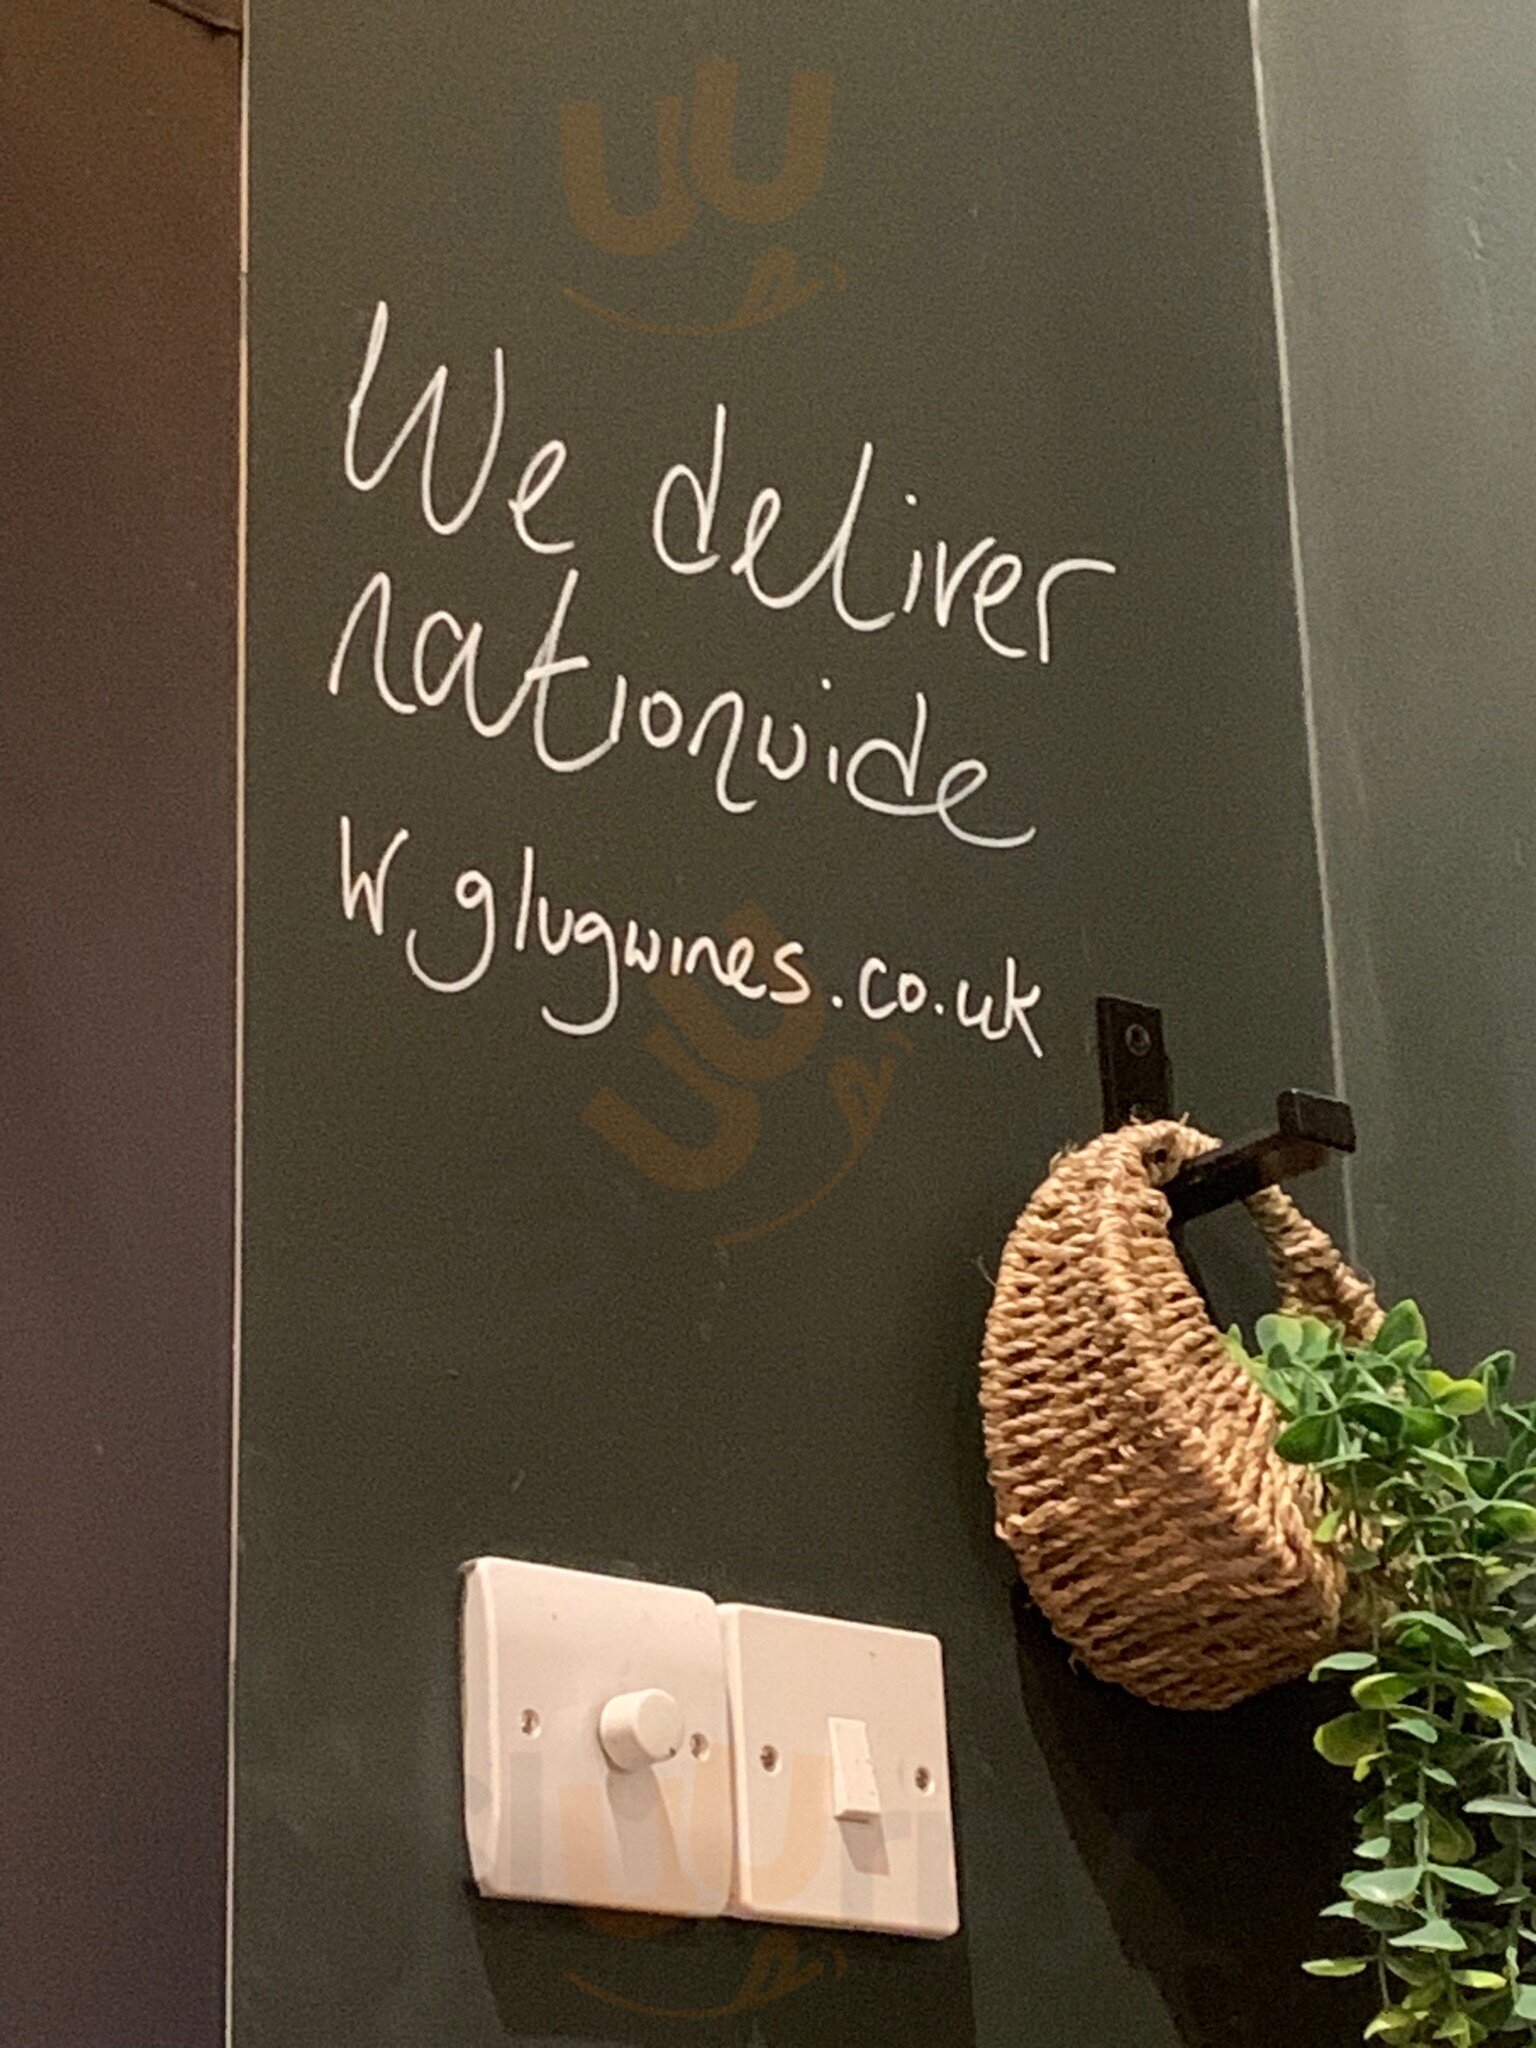 We deliver
nationwide
W glugwines.co.uk